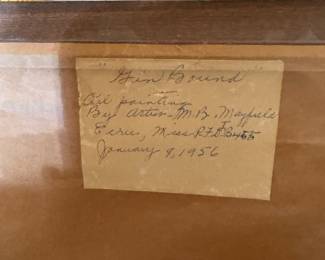 "Gin Bound"
Oil painting
By Artist - M.B. Mayfield
Ecru, Miss RFD
January 9, 1956